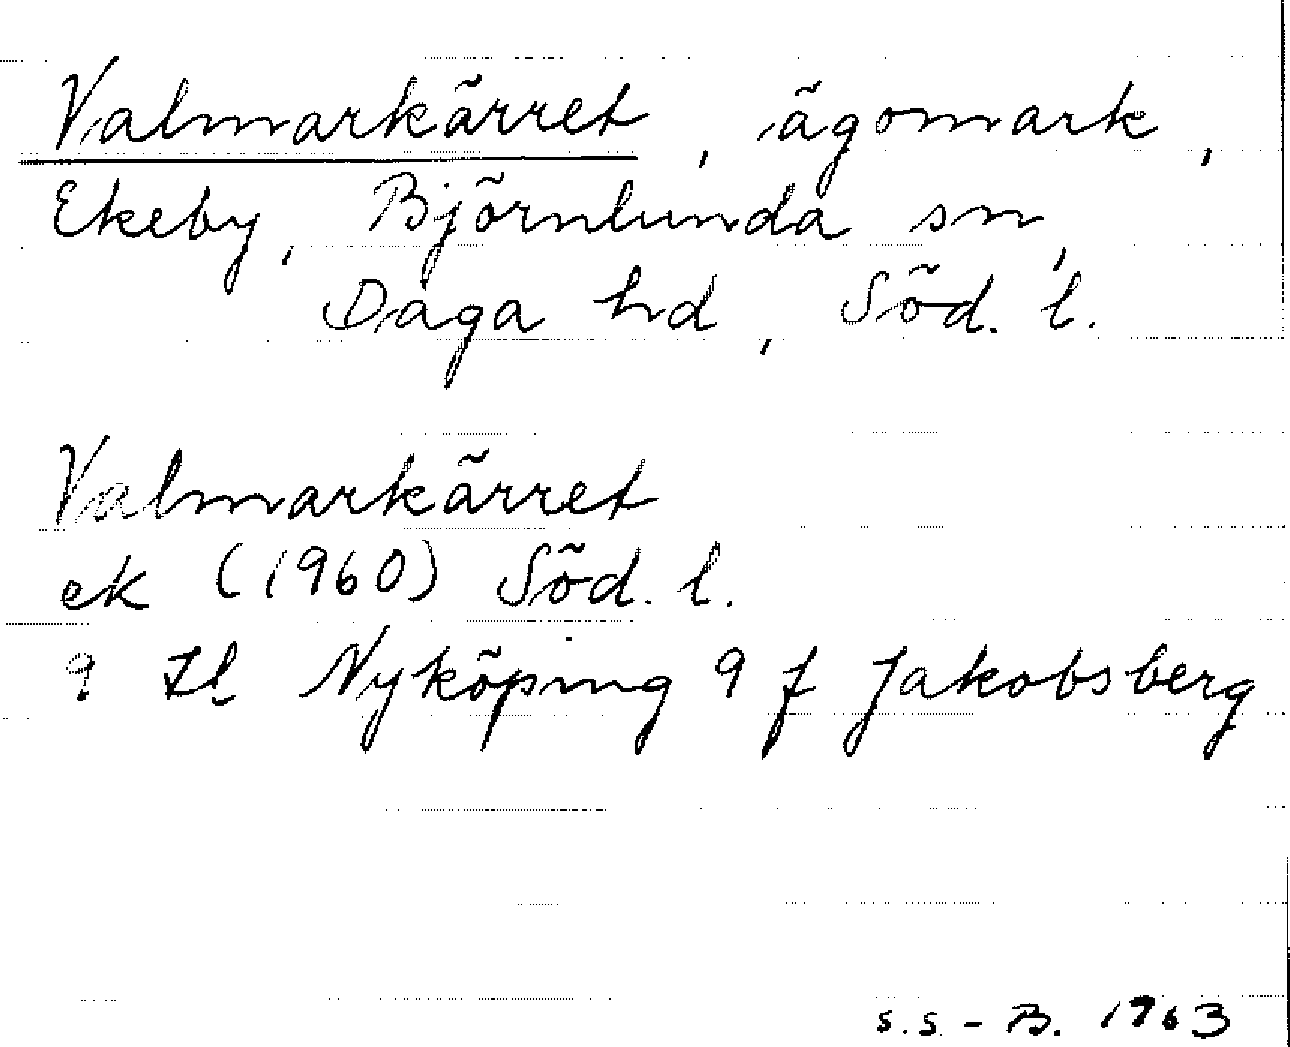 Valmarkärret, ägomark,
Ekeby, Björnlunda sn,
Daga hd, Söd. l.
Valmarkärret
ek (1960) Söd. l.
9 Nyköping 9 f Jakobsberg
s.s - B. 1963